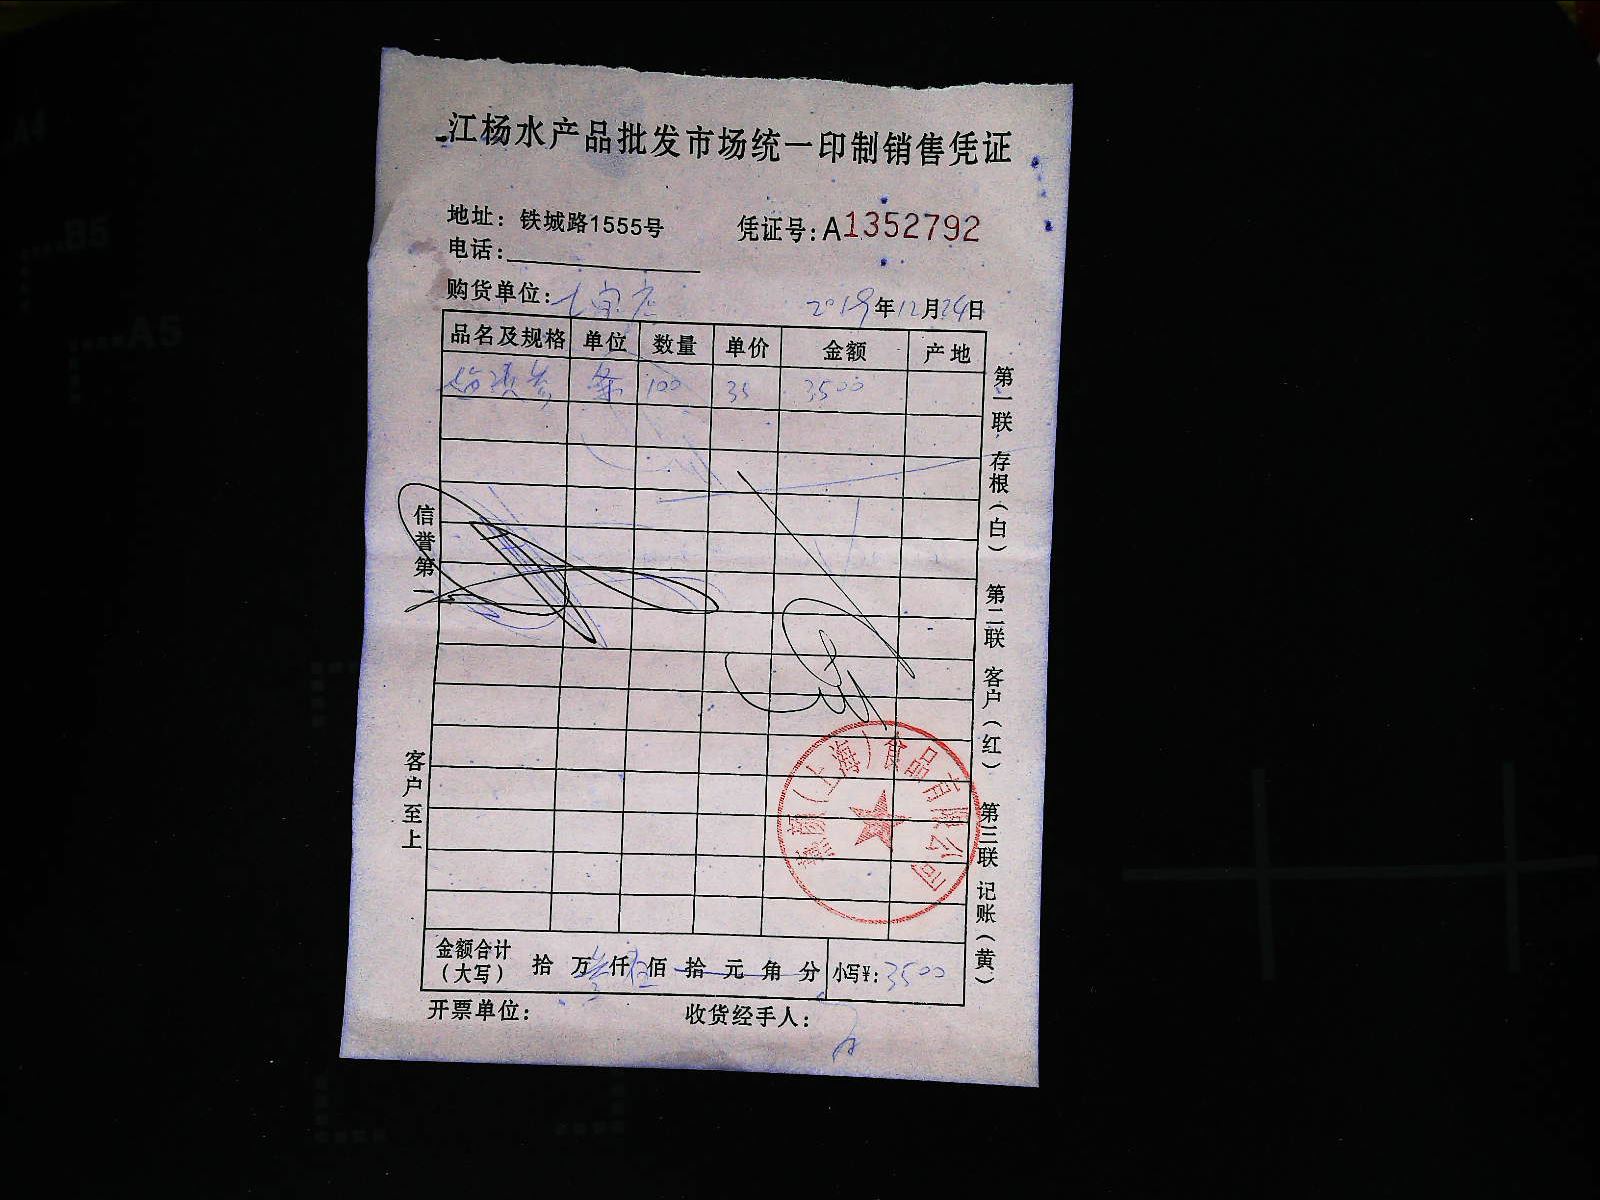 江杨水产品批发市场统一印制销售凭证
地址：铁城路1555号 凭证号：A1352792
电话：
购货单位： 2019年12月24日
品名及规格 单位 数量 单价 金额 产地
条 100 35 3500
信誉第一
客户至上
第一联 存根（白） 第二联 客户（红） 第三联 记账（黄）
（上海）食品有限公司
金额合计（大写） 拾 万叁仟伍佰 拾 元 角 分 小写¥：3500
开票单位： 收货经手人：